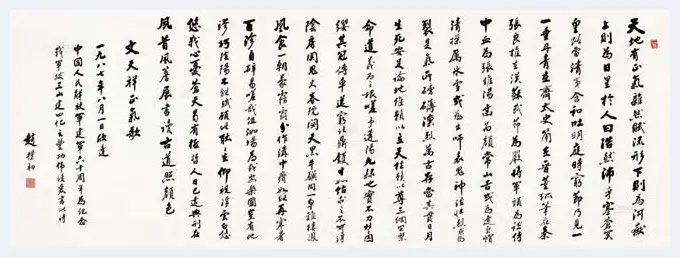 天地有正氣雜然賦流形下則為河嶽
上則為日星於人曰浩然沛乎塞蒼冥
皇路當清夷含和吐明庭時窮節乃見一
一垂丹青在齊太史簡在晉董狐筆在秦
張良椎在漢蘇武節為嚴將軍頭為嵇侍
中血為張睢陽齒為顏常山舌或為遼東帽
清操厲冰雪或為出師表鬼神泣壯烈或為
裂是氣所磅礴凜烈萬古存當其貫日月
生死安足論地維賴以立天柱賴以尊三綱實繫
命道義為之根嗟予遘陽九隸也實不力楚囚
纓其冠傳車送窮北鼎鑊甘如飴求之不可得
陰房闃鬼火春院閟天黑牛驥同一皁雞棲鳳
凰食一朝蒙霧露分作溝中瘠如此再寒暑
百沴自辟易嗟哉沮洳場為我安樂國豈有他
繆巧陰陽不能賊顧此耿耿在仰視浮雲白悠
悠我心憂蒼天曷有極哲人日已遠典刑在
夙昔風簷展書讀古道照顏色
文天祥正氣歌
一九八七年八月一日敬逢
中國人民解放軍建軍六十周年為紀念
我軍山建四化之豐功偉績爰書此詩
趙樸初